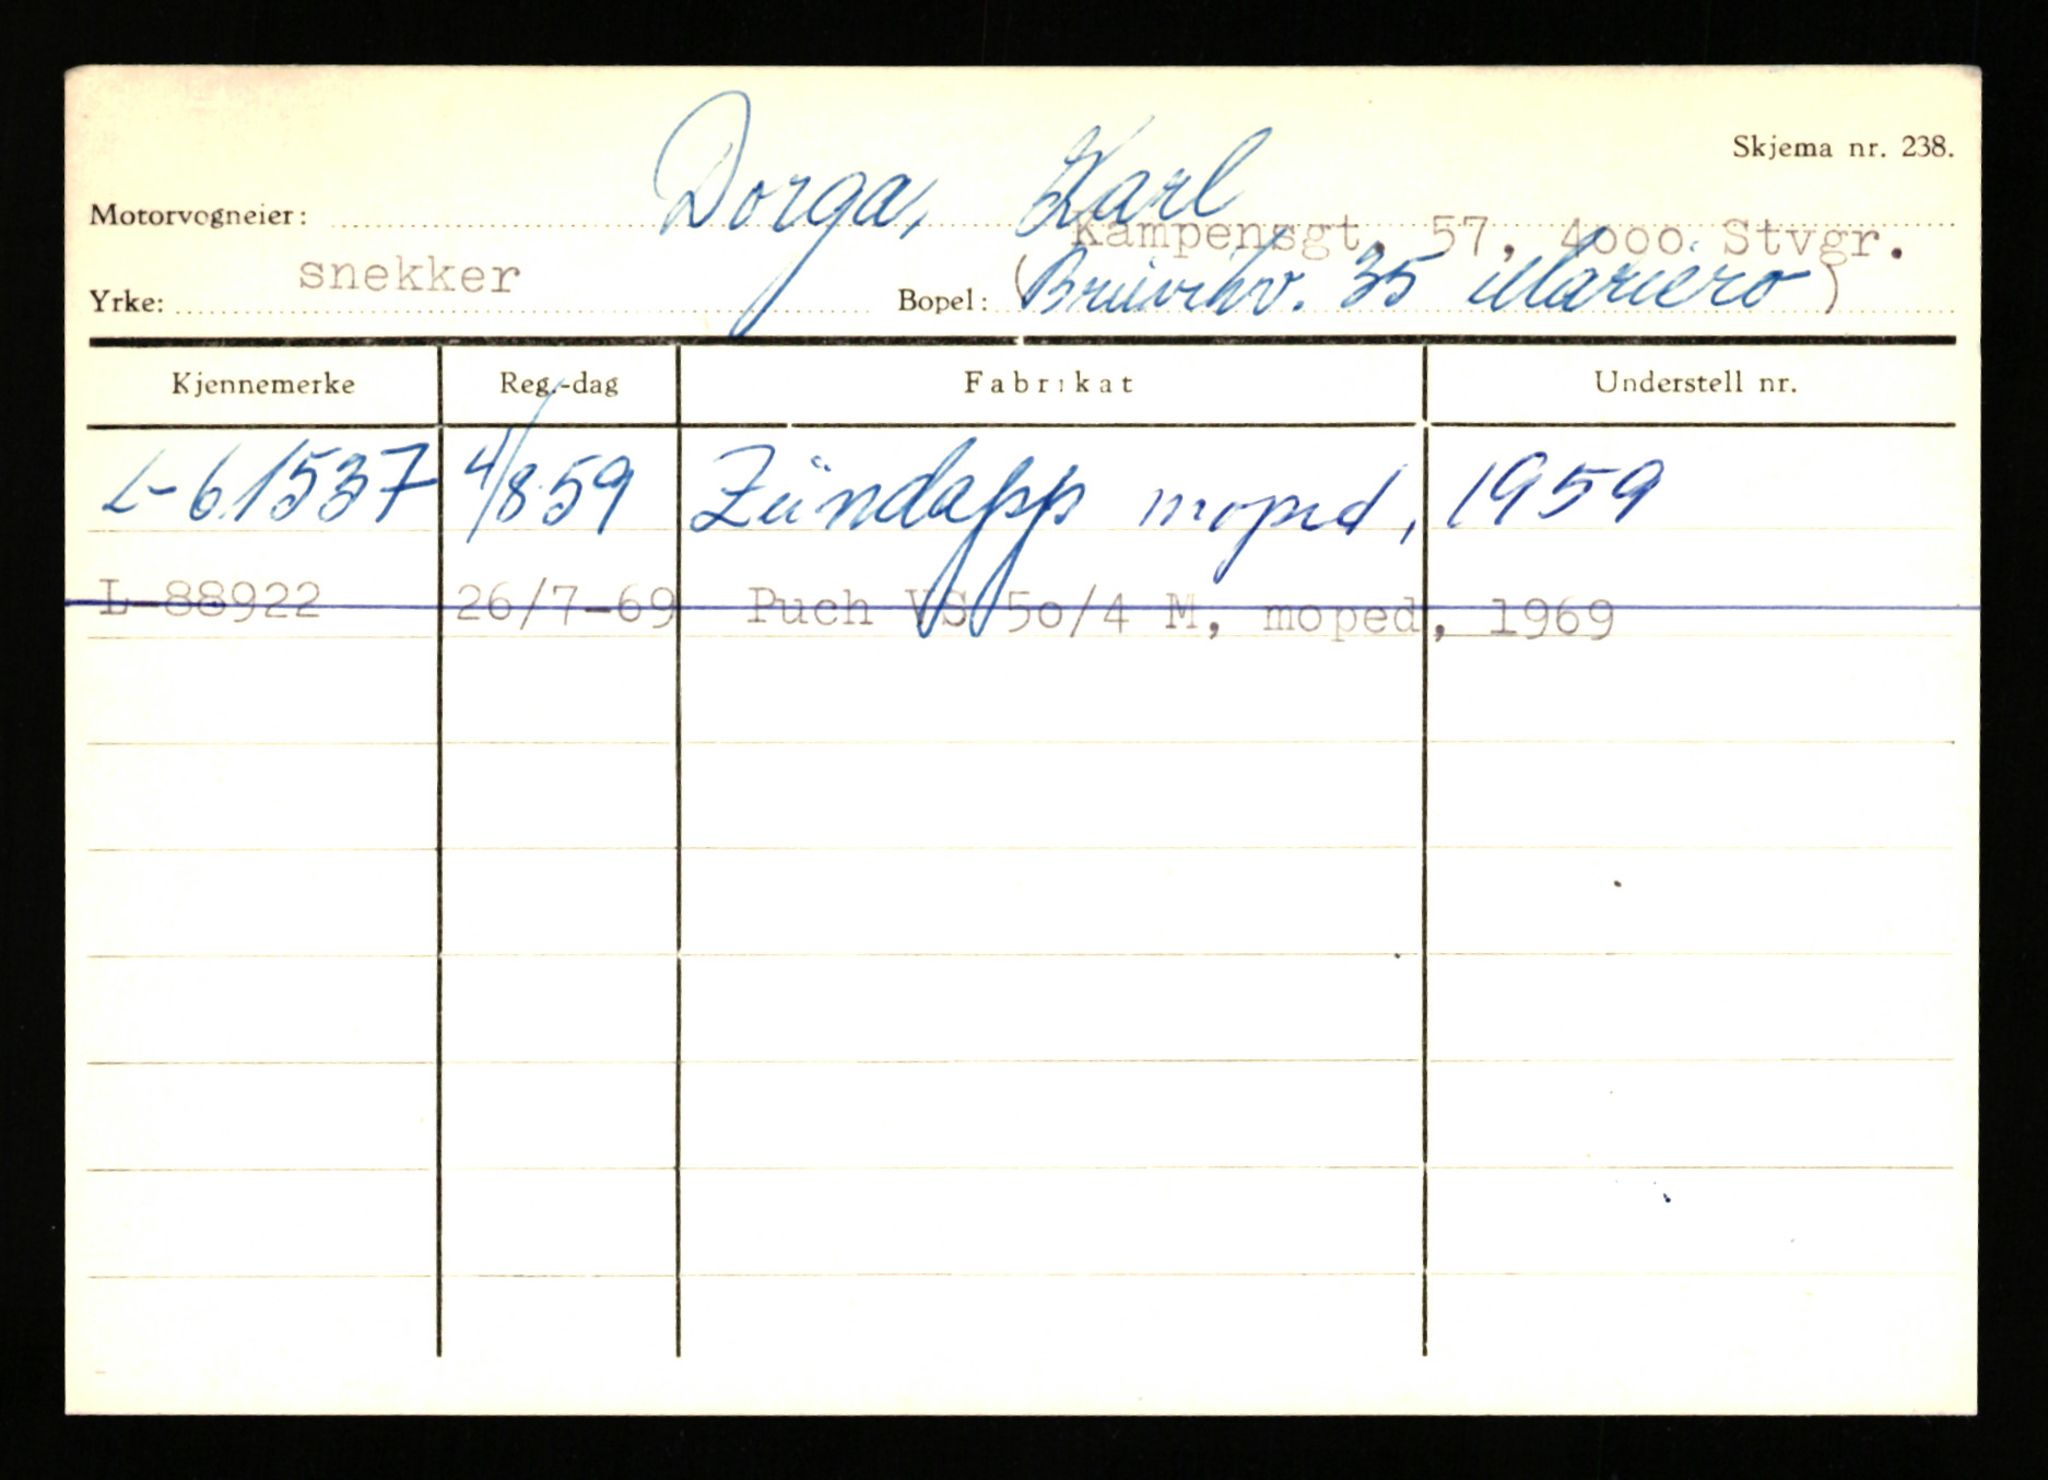 Skjema nr. 238.
Motorvogneier: Dorga, Karl
Kampensgt. 57, 4000 Stvgr.
Yrke: snekker Bopel: ( 35 Mariero)
Kjennemerke Reg.-dag Fabrikat Understell nr.
L-61537 4/8 59 Zündapp moped, 1959
L-88922 26/7-69 Puch VS 50/4 M, moped, 1969